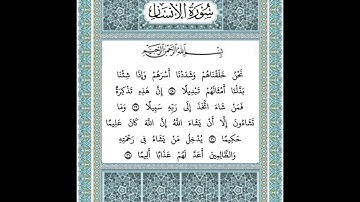 سُورَةُ الْإِنْسَانِ
بِسْمِ اللَّهِ الرَّحْمَٰنِ الرَّحِيمِ
نَحْنُ خَلَقْنَاهُمْ وَشَدَدْنَا أَسْرَهُمْ وَإِذَا شِئْنَا
بَدَّلْنَا أَمْثَالَهُمْ تَبْدِيلًا ۝ إِنَّ هَٰذِهِ تَذْكِرَةٌ
فَمَنْ شَاءَ اتَّخَذَ إِلَىٰ رَبِّهِ سَبِيلًا ۝ وَمَا
تَشَاءُونَ إِلَّا أَنْ يَشَاءَ اللَّهُ إِنَّ اللَّهَ كَانَ عَلِيمًا
حَكِيمًا ۝ يُدْخِلُ مَنْ يَشَاءُ فِي رَحْمَتِهِ
وَالظَّالِمِينَ أَعَدَّ لَهُمْ عَذَابًا أَلِيمًا ۝